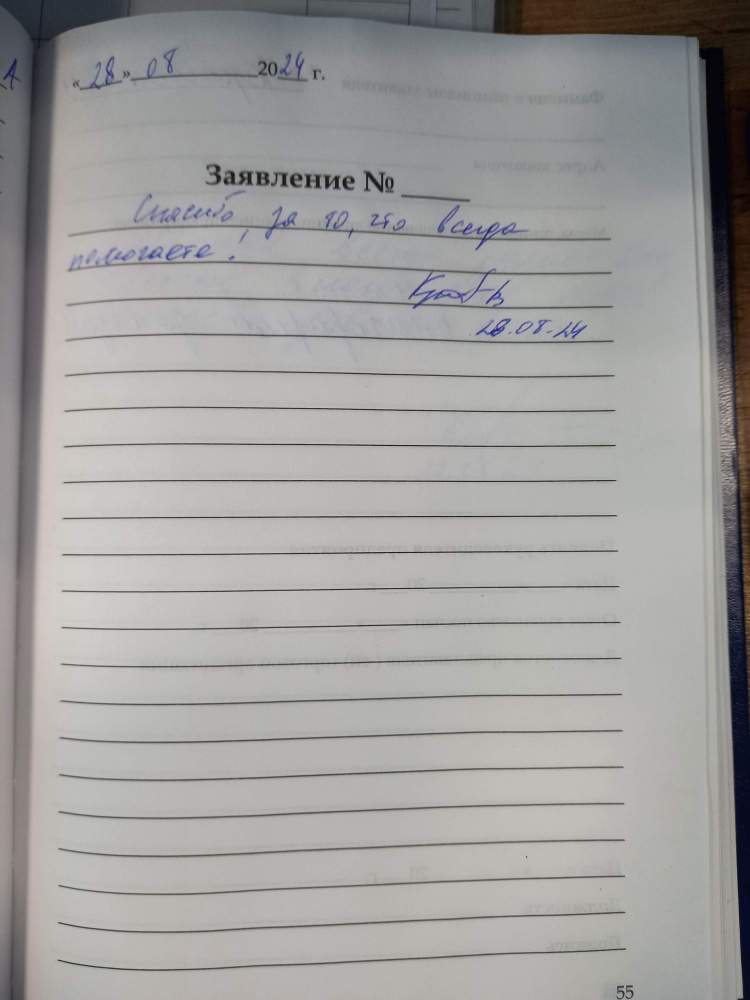 «28» 08 2024 г.
Заявление №
Спасибо, за то, что всегда
помогаете!
28.08.24
55